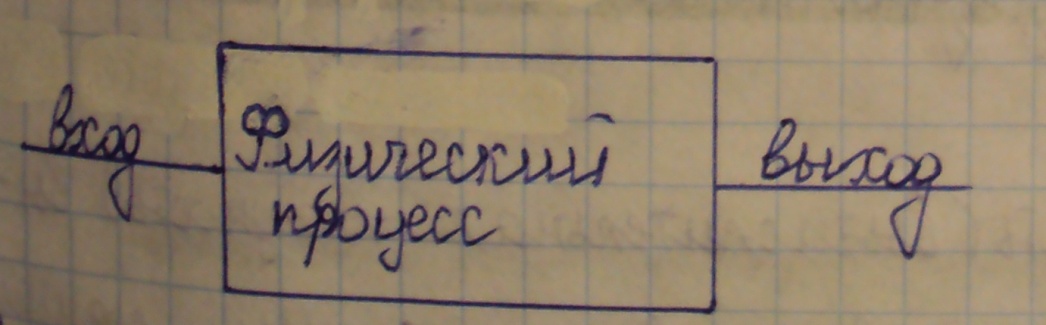 вход
Физический
процесс
выход